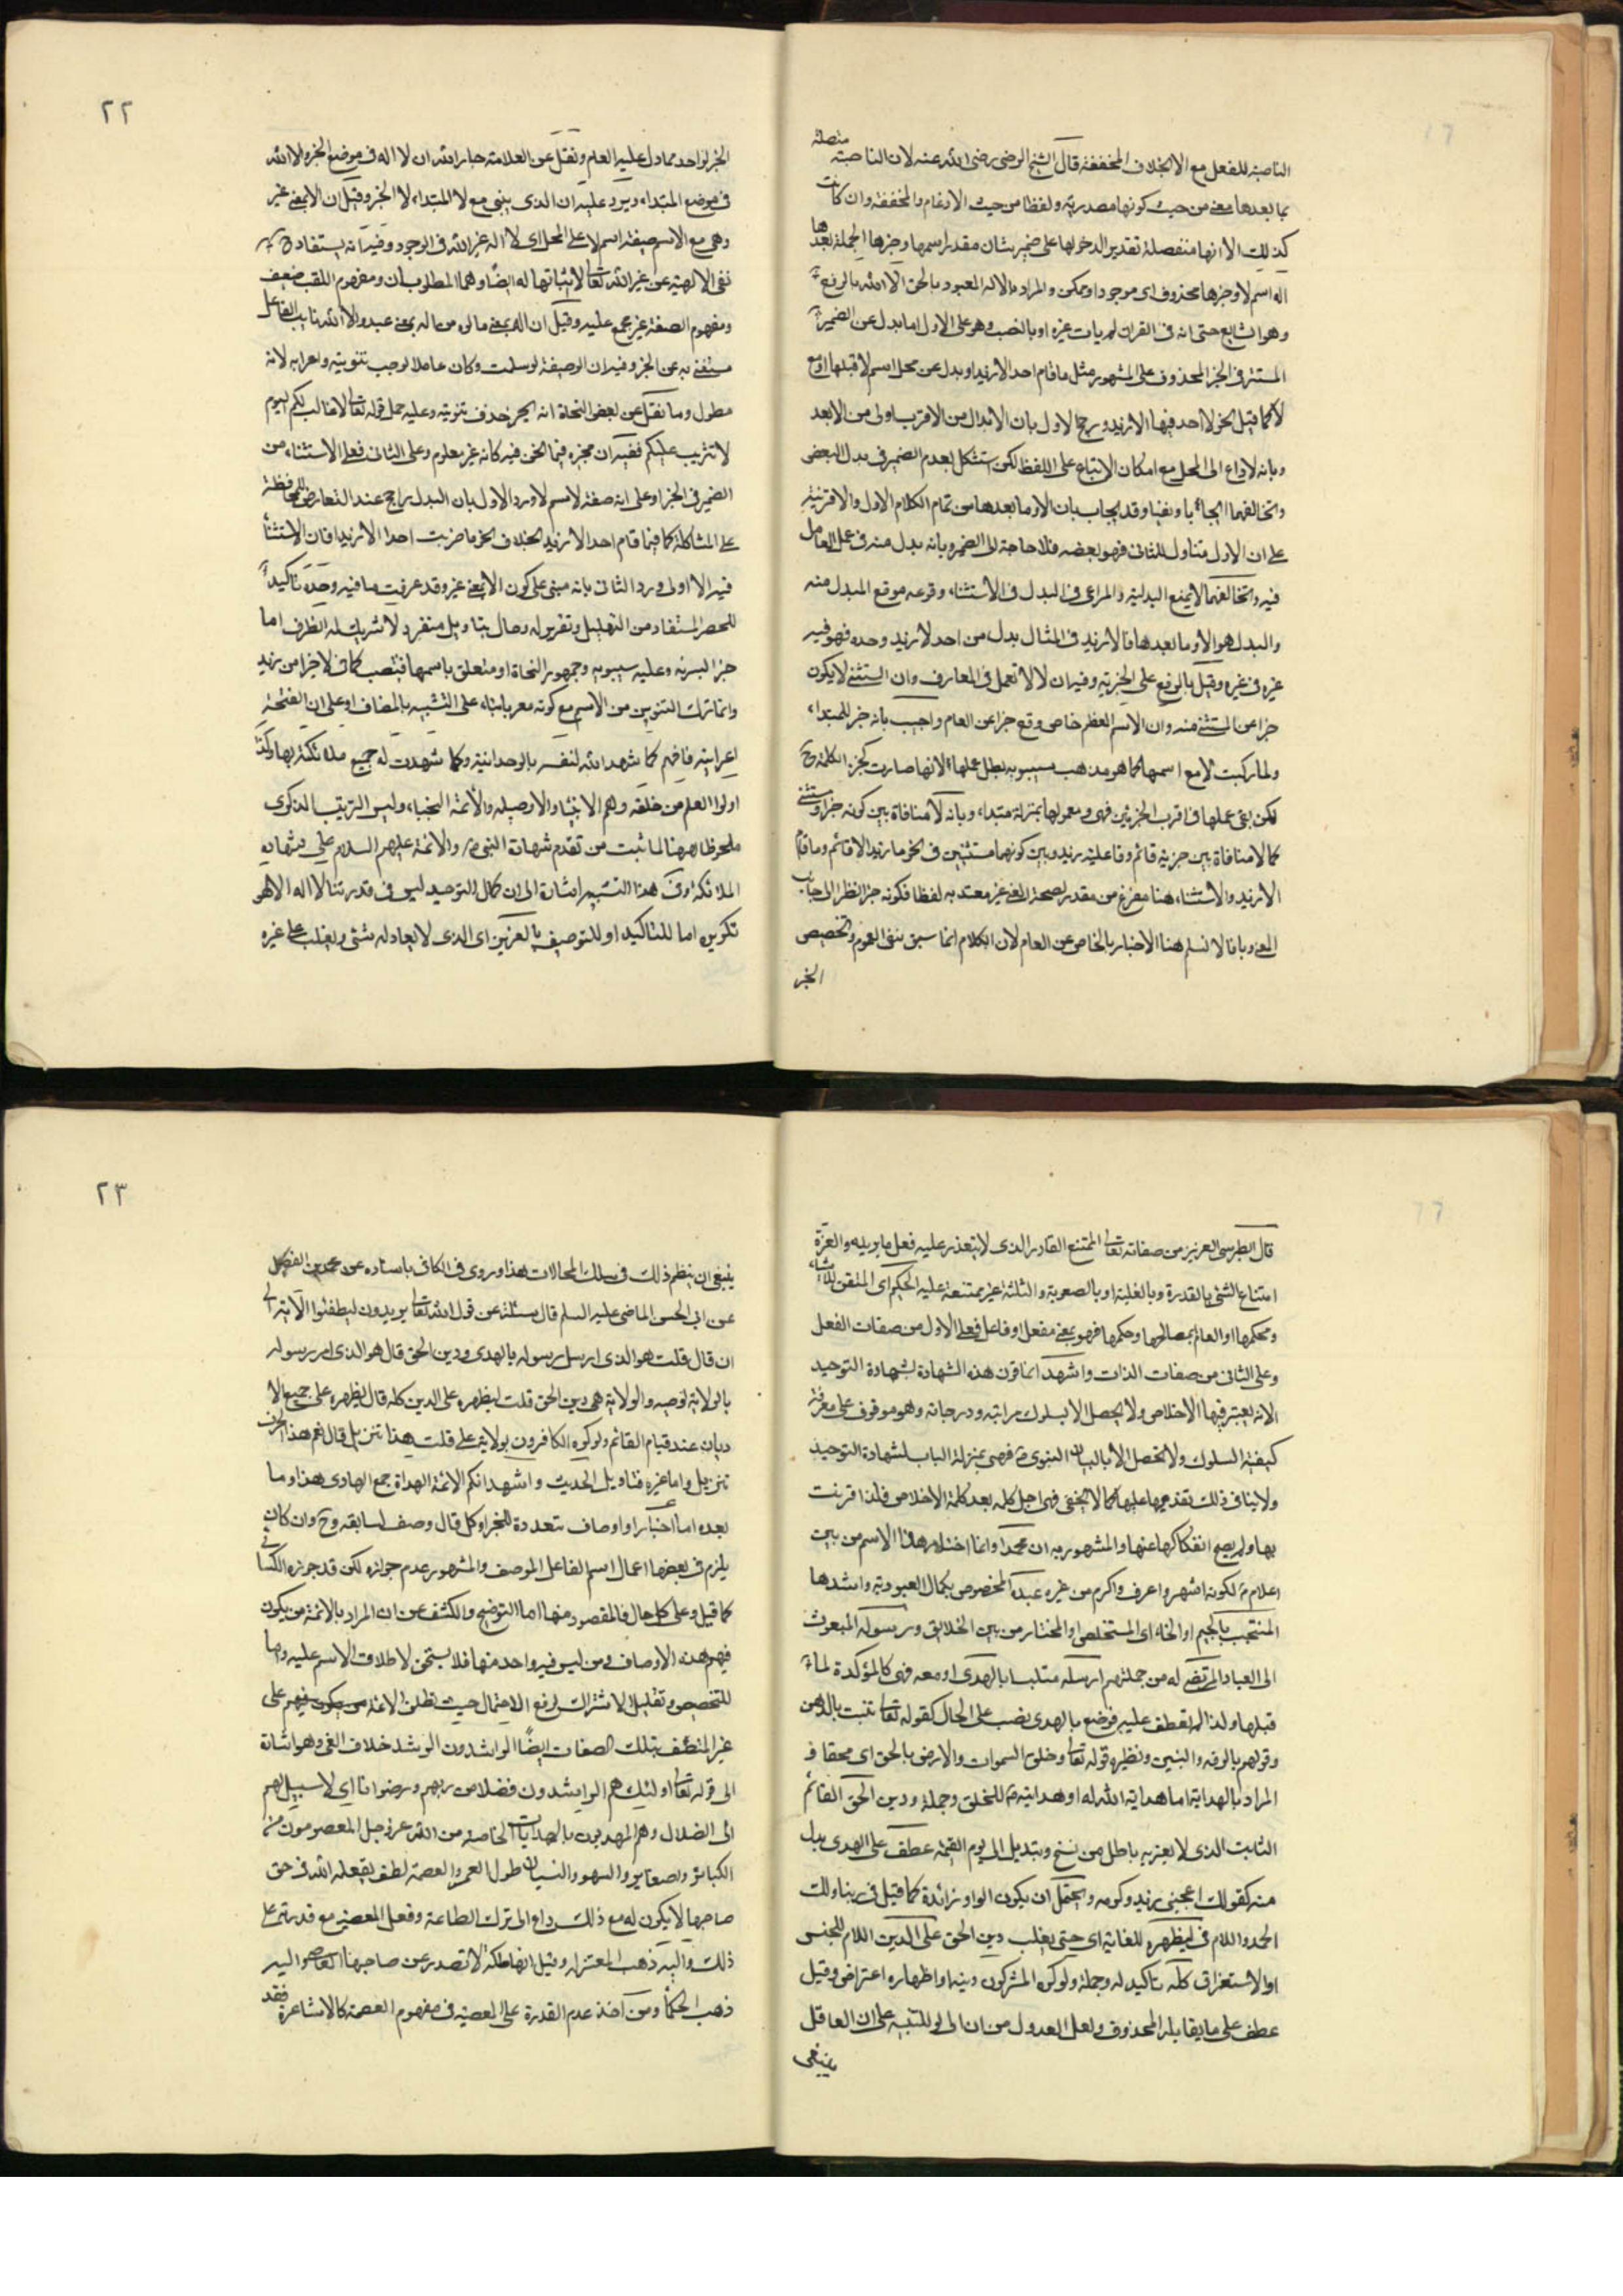 الناصبة للفعل مع الا بخلاف المخففة قال الشيخ الرضي رضى الله عنه لان الناصبة متصلة
بما بعدها معنى من حيث كونها مصدرية ولفظا من حيث الادغام والمخففة وان كانت
كذلك الا انها منفصلة تقدير الدخولها على ضمير شان مقدر اسمها وخبرها الجملة بعدها
اله اسم لا وخبرها محذوف اى موجود او ممكن والمراد بالاله المعبود بالحق الا الله بالرفع
وهو الشايع حتى انه فى القران لم يات غيره او بالنصب وهو على الاول اما بدل عن الضمير
المستتر فى الخبر المحذوف على المشهور مثل ما قام احد الا زيد او بدل عن محل اسم لا قبلها
لا كما قيل نحو لا احد فيها الا زيد ورجح الاول بان الابدال من الاقرب اولى من الابعد
وبانه لا داع الى المحل مع امكان الاتباع على اللفظ لكن استشكل بعدم الضمير فى بدل البعض
وتخالفهما ايجابا ونفيا وقد يجاب بان الا وما بعدها من تمام الكلام الاول والا قرينة
على ان الاول متناول للثانى فهو بعضه فلا حاجة الى الضمير وبانه بدل منه فى عمل العامل
فيه وتخالفهما لا يمنع البدلية والمراعى فى البدل فى الاستثناء وقوعه موقع المبدل منه
والبدل هو الا وما بعدها فالا زيد فى المثال بدل من احد لا زيد وحده فهو فيه
غيره فى غيره وقيل بالرفع على الخبرية وفيه ان لا لا تعمل فى المعارف وان المستثنى لا يكون
خبرا عن المستثنى منه وان الاسم العظم خاص وقع خبرا عن العام واجيب بانه خبر للمبتداء
ولما ركبت لا مع اسمها كما هو مذهب سيبويه بطل عملها لانها صارت كجزء الكلمة
لكن بقى عملها فى اقرب الجزئين فهى ومعمولها بمنزلة مبتداء وبانه لا منافاة بين كونه خبرا ومستثنى
كما لا منافاة بين خبرية قائم وفاعلية زيد وبين كونهما مستثنين فى نحو ما زيد الا قائم وما قام
الا زيد والاستثناء هنا مفرغ من مقدر لصحة المعنى غير معتد به لفظا فكونه خبرا نظرا الى جانب
المعنى وبانا لا نسلم هنا الاخبار بالخاص عن العام لان الكلام انما سبق بنفى العموم وتخصيص
الخبر
٢٢
الخبر لواحد مما دل عليه العام ونقل عن العلامة جار الله ان لا اله فى موضع الخبر والا الله
فى موضع المبتداء ويرد عليه ان الذى يبنى مع لا المبتداء لا الخبر وقيل ان الا بمعنى غير
وهى مع الاسم صفة اسم لا على المحل اى لا اله غير الله فى الوجود وفيه انه يستفاد
نفى الالهية عن غير الله تعالى لا اثباتها له ايضا وهما المطلوبان ومفهوم اللقب ضعيف
ومفهوم الصفة غير مجمع عليه وقيل ان اله بمعنى مالوه من اله بمعنى عبد والا الله نايب الفاعل
مستغنى به عن الخبر وفيه ان الوصفية لو سلمت وكان عاملا لوجب تنوينه واعرابه لانه
مطول وما نقل عن بعض النحاة انه يجوز حذف تنوينه وعليه حمل قوله تعالى لا غالب لكم اليوم
لا تثريب عليكم ففيه ان مجوزه فيما نحن فيه كانه غير معلوم وعلى الثانى فعلى الاستثناء من
الضمير فى الخبر او على انه صفة لاسم لا ورد الاول بان البدل راجح عند التعارض للمحافظة
على المشاكلة كما فيما قام احد الا زيد بخلاف نحو ما ضربت احدا الا زيدا فان الاستثناء
فيه الا اولى ورد الثانى بانه مبنى على كون الا بمعنى غير وقد عرفت ما فيه وحده تاكيد
للحصر المستفاد من التهليل وتقرير له وحال بتاويل منفرد لا شريك له الظرف اما
خبر اليسريه وعليه سيبويه وجمهور النحاة او متعلق باسمها فنصب كما فى لا خيرا من زيد
وانما ترك التنوين من الاسم مع كونه معربا بناء على التشبيه بالمضاف او على ان الفتحة
اعرابية فافهم كما شهد الله لنفسه بالوحدانية وكما شهدت له جميع ملائكته بها وكذا
اولوا العلم من خلقه وهم الانبياء والاوصياء والائمة النجباء وليس الترتيب الذكرى
ملحوظا ههنا لما ثبت من تقدم شهادة النبى والائمة عليهم السلام على شهادة
الملائكة وفى هذا التشبيه اشارة الى ان كمال التوحيد ليس فى قدرتنا لا اله الا هو
تكريره اما للتاكيد او للتوصيف بالعزيز اى الذى لا يعادله شئ ويغلب على غيره
قال الطبرسى العزيز من صفاته تعالى الممتنع القادر الذى لا يتعذر عليه فعل ما يريده والعزة
امتناع الشئ بالقدرة وبالغلبة او بالصعوبة والثلثة غير ممتنعة عليه الحكيم اى المتقن للاشياء
ومحكمها او العالم بمصالحها وحكمها فهو بمعنى مفعل او فاعل فعلى الاول من صفات الفعل
وعلى الثانى من صفات الذات واشهد انما قرن هذه الشهادة بشهادة التوحيد
لانه يعتبر فيها الاخلاص ولا يحصل الا بسلوك مراتبه ودرجاته وهو موقوف على معرفة
كيفية السلوك ولا تحصل الا بالبيان النبوى فهى بمنزلة الباب لشهادة التوحيد
ولا ينافى ذلك تقديمها عليها كما لا يخفى فهى اجل كلمة بعد كلمة الاخلاص فلذا قرنت
بها ولم يصح انفكاكها عنها والمشهور به ان محمدا وانما اختار هذا الاسم من بين
اعلامه لكونه اشهر واعرف واكرم من غيره عبده المخصوص بكمال العبودية واشدها
المنتجب بالجيم او الخاء اى المستخلص او المختار من بين الخلايق ورسوله المبعوث
الى العباد المرتضى له من جملتهم ارسله متلبسا بالهدى او معه فهى كالمؤكدة لما
قبلها ولذا لم تعطف عليه فوضع بالهدى نصب على الحال كقوله تعالى تنبت بالدهن
وقولهم بالرفه والبنين ونظيره قوله تعالى وخلق السموات والارض بالحق اى محقا
المراد بالهداية اما هداية الله له او هدايته للخلق وجملة ودين الحق القائم
الثابت الذى لا يعتريه باطل من نسخ وتبديل الى يوم القيمة عطف على الهدى بدل
منه كقولك اعجبنى زيد وكرمه ويحتمل ان يكون الواو زائدة كما قيل فى ربنا ولك
الحمد واللام فى ليظهره للغاية اى حتى يغلب دين الحق على الدين اللام للجنس
او الاستغراق كله تاكيد له وجملة ولو كره المشركون دينه او اظهاره اعتراض وقيل
عطف على ما يقابله المحذوف ولعل العدول من ان الى لو للتنبيه على ان العاقل
ينبغى
٢٣
ينبغى ان ينظم ذلك فى سلك المحالات هذا وروى فى الكافى باسناده عن محمد بن الفضيل
عن ابى الحسن الماضى عليه السلم قال سئلته عن قول الله تعالى يريدون ليطفئوا الاية الى
ان قال قلت هو الذى ارسل رسوله بالهدى ودين الحق قال هو الذى امر رسوله
بالولاية لوصيه والولاية هى دين الحق قلت ليظهره على الدين كله قال يظهره على جميع الا
ديان عند قيام القائم ولو كره الكافرون بولاية على قلت هذا تنزيل قال نعم هذا الحرف
تنزيل واما غيره فتاويل الحديث واشهد انكم الائمة الهداة جمع الهادى هذا وما
بعده اما اخبار او اوصاف متعددة للخبر او كل قال وصف لسابقه وح وان كان
يلزم فى بعضها اعمال اسم الفاعل الموصف والمشهور عدم جوازه لكن قد جوزه الكسائى
كما قيل وعلى كل حال فالمقصود منها اما التوضيح والكشف عن ان المراد بالائمة من يكون
فيهم هذه الاوصاف ومن ليس فيه واحد منها فلا يستحق لاطلاق الاسم عليه واما
للتخصيص وتقليل الاشتراك لرفع الاحتمال حيث تطلق الائمة من يكون فيهم على
غير المتصف بتلك الصفات ايضا الراشدون الرشد خلاف الغى وهو اشارة
الى قوله تعالى اولئك هم الراشدون فضلا من ربهم ورضوانا اى لا سبيل لهم
الى الضلال وهم المهديون بالهدايات الخاصة من الله عز وجل المعصومون من
الكبائر والصغاير والسهو والنسيان طول العمر والعصمة لطف يفعله الله فى حق
صاحبها لا يكون له مع ذلك داع الى ترك الطاعة وفعل المعصية مع قدرته على
ذلك واليه ذهب المعتزلة وقيل انها ملكة لا تصدر عن صاحبها المعاصى واليه
ذهب الحكما ومن اخذ عدم القدرة على المعصية فى مفهوم العصمة كالاشاعرة فقد